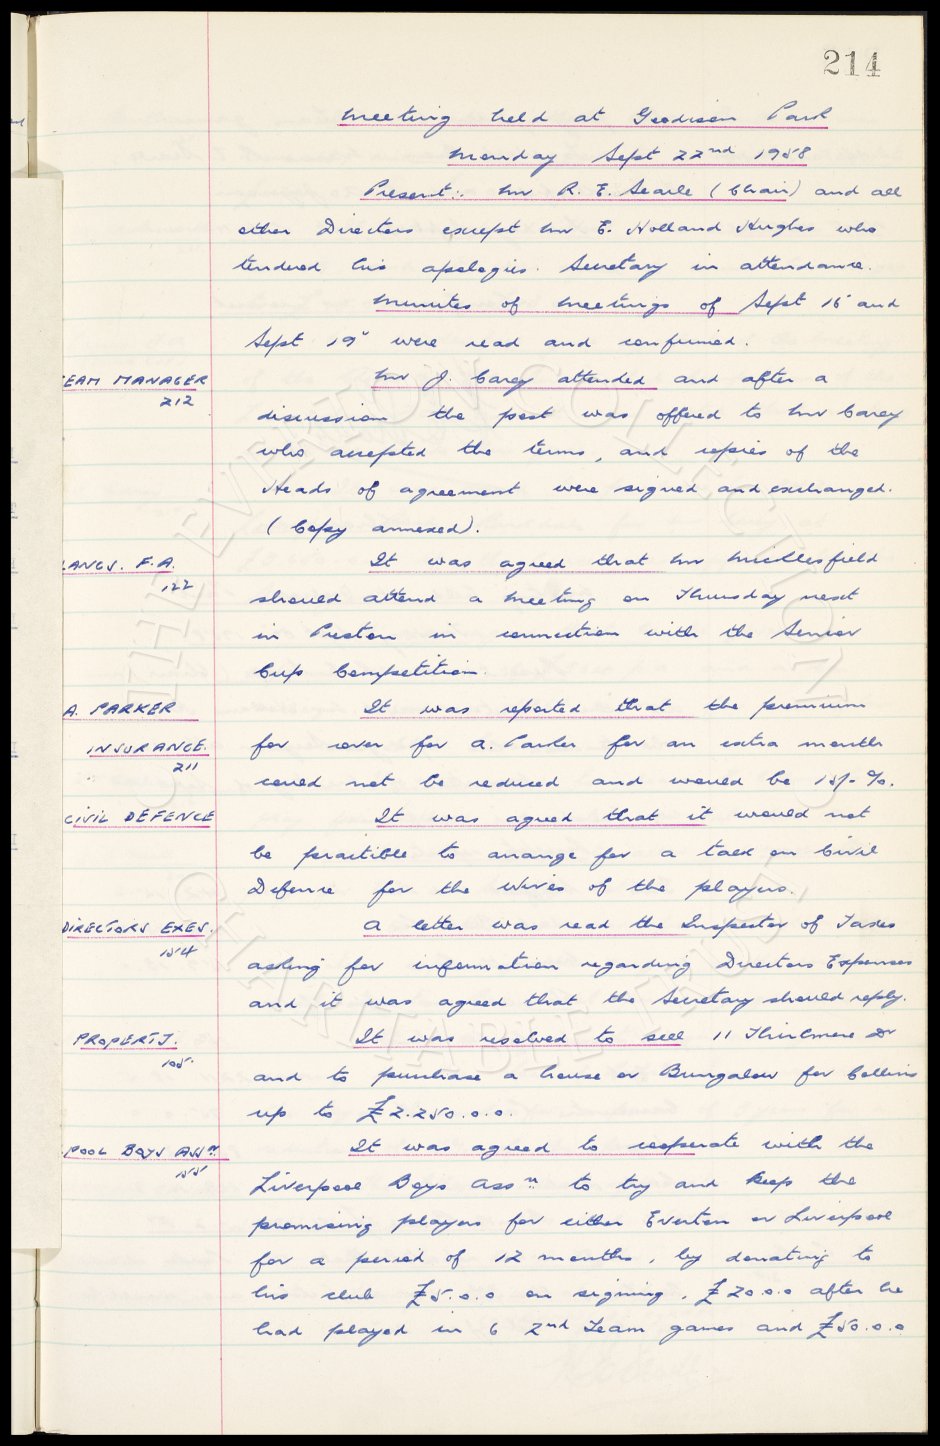 214
Meeting held at Goodison Park
Monday Sept 22nd 1958
Present:- Mr R. E. Searle (Chair) and all
other Directors except Mr E. Holland Hughes who
tendered his apologies. Secretary in attendance.
Minutes of Meetings of Sept 15 and
Sept 19" were read and confirmed.
TEAM MANAGER Mr J. Carey attended and after a
212
discussion the post was offered to Mr Carey
who accepted the terms, and copies of the
Heads of agreement were signed and exchanged.
(Copy annexed).
LANCS. F.A. It was agreed that Mr Micklesfield
122
should attend a meeting on Thursday next
in Preston in connection with the Senior
Cup Competition.
A. PARKER It was reported that the premium
INSURANCE. for cover for A. Parker for an extra month
211
could not be reduced and would be 15/- %.
CIVIL DEFENCE It was agreed that it would not
be practible to arrange for a talk on Civil
Defence for the Wives of the players.
DIRECTORS EXES. A letter was read the Inspector of Taxes
154
asking for information regarding Directors Expenses
and it was agreed that the Secretary should reply.
PROPERTY. It was resolved to sell 11 Thirlmere Dr
105.
and to purchase a house or Bungalow for Collins
up to £2.250.0.0.
POOL BOYS ASSn. It was agreed to cooperate with the
155
Liverpool Boys Assn to try and keep the
promising players for either Everton or Liverpool
for a period of 12 months, by donating to
his club £5.0.0 on signing, £20.0.0 after he
had played in 6 2nd Team games and £50.0.0
THE EVERTON COLLECTION
CHARITABLE TRUST